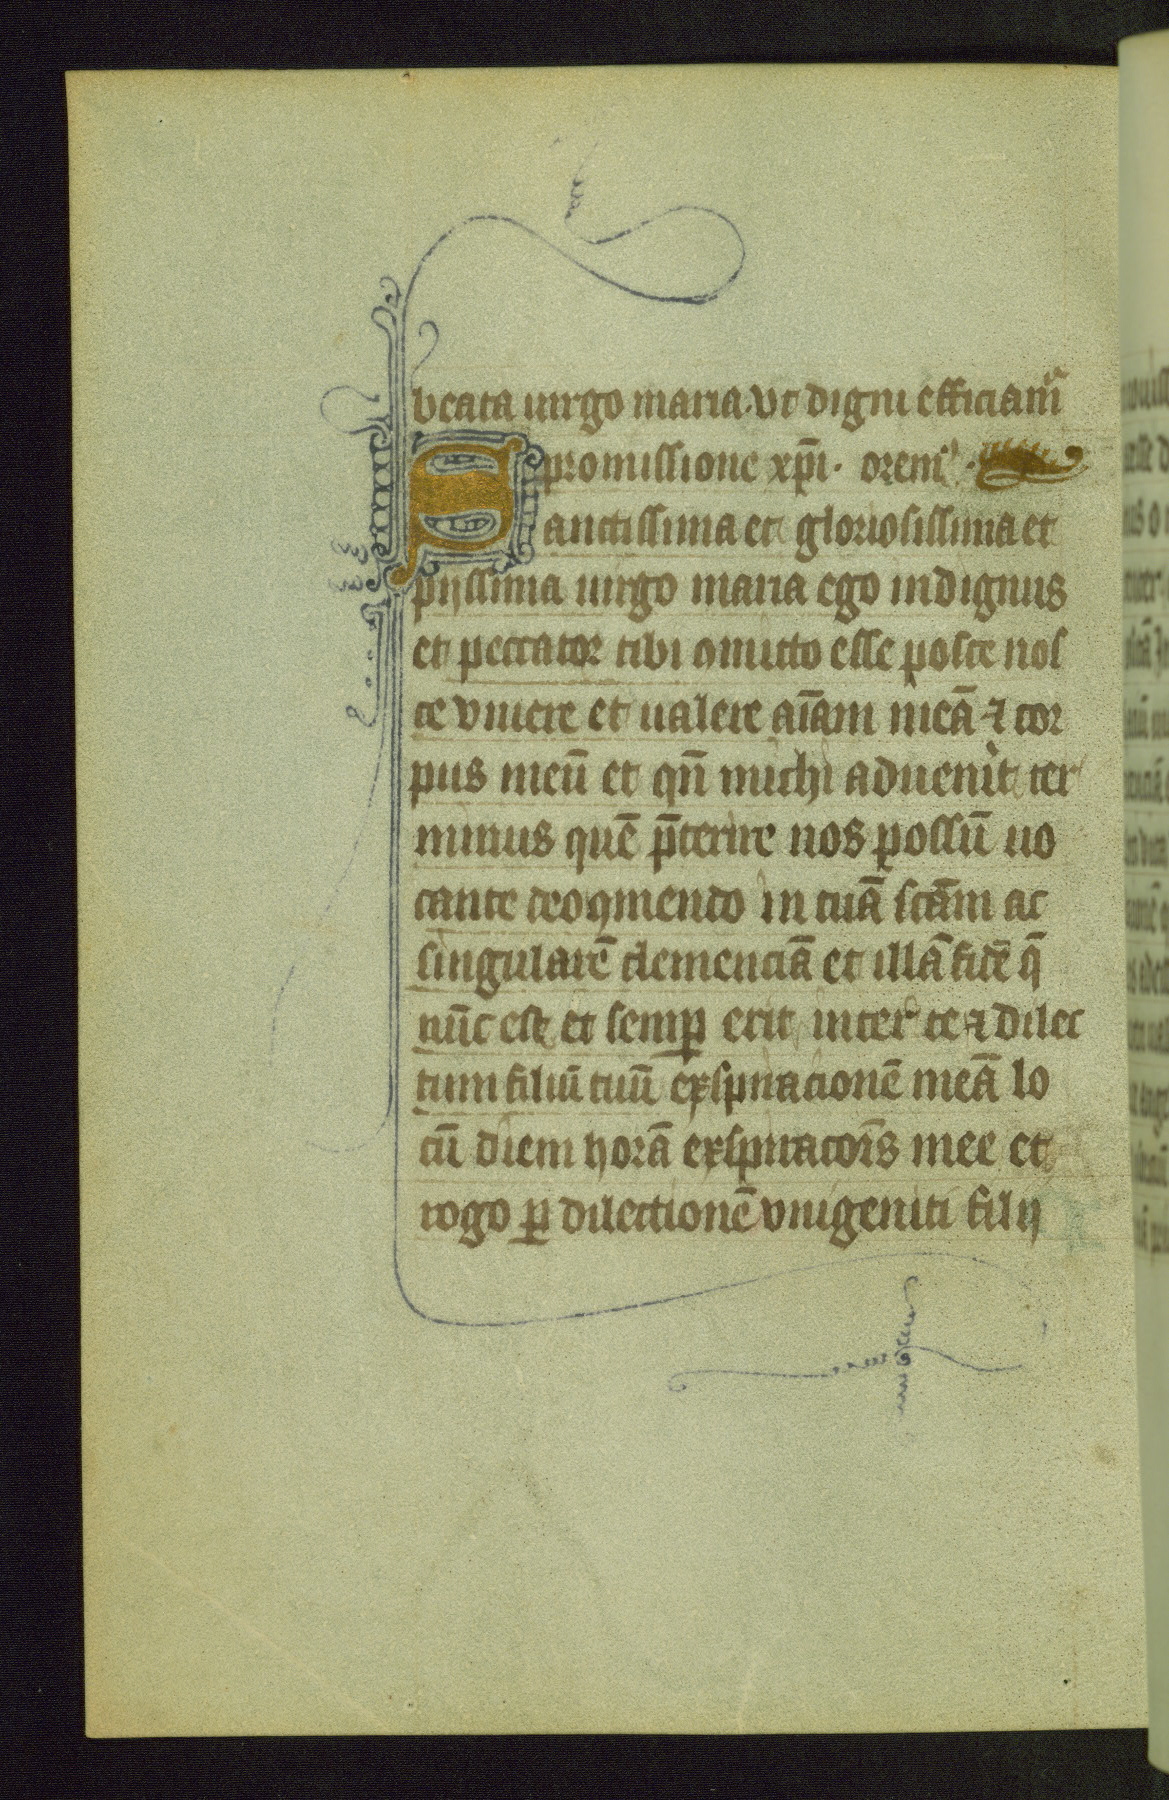 beata uirgo maria. vt digni efficiam̃
promissione xp̄i. orem᷒.
Sanctissima et gloriosissima et
pijssima uirgo maria ego indignus
et peccator tibi ꝯmitto esse posse nos
ce viuere et ualere aīam meā ⁊ cor
pus meū et qn̄ michi aduenit ter
minus quē p̄terire nos possū uo
cante deo ꝯmendo in tuā sc̄am ac
singularē clemenciā et illā fidē q̄
nūc est et semꝑ erit inter te ⁊ dilec
tum filiū tuū exspiracionē meā lo
cū diem horā exspiracoīs mee et
rogo ꝑ dilectionē vnigeniti filij